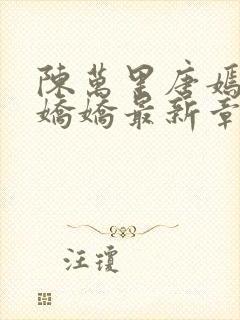 陳萬里唐嫣
嬌嬌最新章
汪瓊